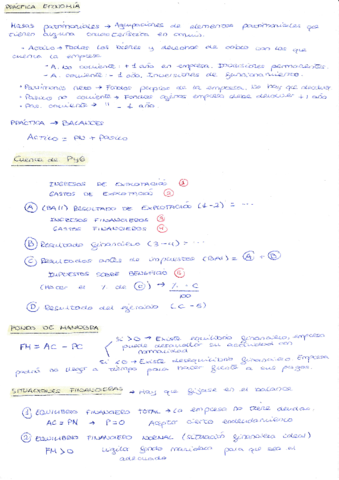 PRÁCTICA ECONOMÍA
Masas patrimoniales → Agrupaciones de elementos patrimoniales que
tienen alguna característica en común.
• Activo → Todos los bienes y derechos de cobro con los que
cuenta la empresa.
- A. no corriente + 1 año en empresa. Inversiones permanentes.
- A. corriente - 1 año. Inversiones de funcionamiento.
• Patrimonio neto → Fondos propios de la empresa. No hay que devolver
• Pasivo no corriente → Fondos ajenos empresa debe devolver + 1 año
• Pas. corriente → " - 1 año.
PRÁCTICA → BALANCES
ACTIVO = PN + PASIVO
Cuenta de PyG
INGRESOS DE EXPLOTACIÓN 1
GASTOS DE EXPLOTACIÓN 2
A (BAII) RESULTADO DE EXPLOTACIÓN (1-2) = ...
INGRESOS FINANCIEROS 3
GASTOS FINANCIEROS 4
B Resultado financiero (3-4) = ...
C Resultados antes de impuestos (BAI) = A + B
IMPUESTOS SOBRE BENEFICIO 5
(Hacer el % de C) → % · C
100
D Resultado del ejercicio (C - 5)
FONDO DE MANIOBRA
FM = AC - PC
Si > 0 → Existe equilibrio financiero, empresa
puede desarrollar su actividad con
normalidad
Si < 0 → Existe desequilibrio financiero. Empresa
no llegar a tiempo para hacer frente a sus pagos.
SITUACIONES FINANCIERAS → Hay que fijarse en el balance
1 EQUILIBRIO FINANCIERO TOTAL → La empresa no tiene deudas.
AC = PN → P = 0 Aceptar cierto endeudamiento
2 EQUILIBRIO FINANCIERO NORMAL (SITUACIÓN financiera ideal)
FM > 0 fondo maniobra para que sea el
adecuado